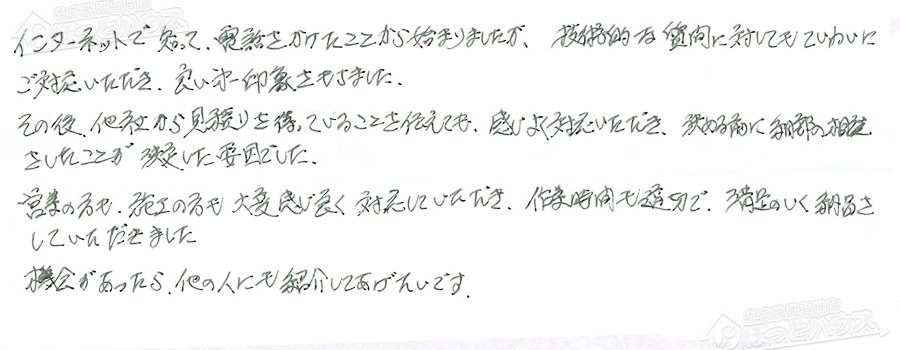 インターネットで知って、電話をかけたことから始まりましたが、技術的な質問に対してもていねいに
ご対応いただき、良い第一印象をもちました。
その後、他社から見積りを待っていることを伝えても、感じよく対応いただき、決める前に細部の相談
をしたことが決定した要因でした。
営業の方も、施工の方も大変感じ良く対応していただき、作業時間も適切で、満足のいく納品を
していただきました
機会があったら、他の人にも紹介してあげたいです。
住宅設備専門店
ほっとハウス
住宅設備専門店
ほっとハウス